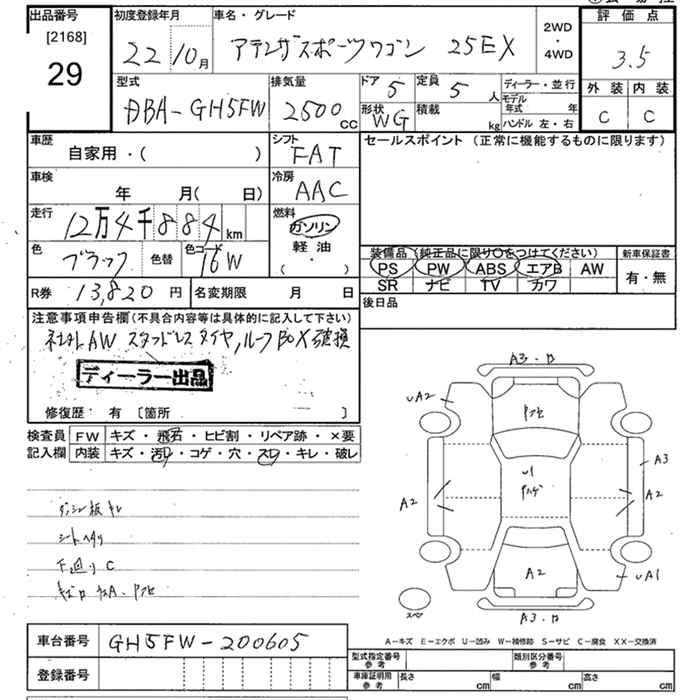 出品番号 [2168] 29
初度登録年月 22年 10月
車名・グレード アテンザスポーツワゴン 25EX
2WD・4WD
評価点 3.5
型式 DBA-GH5FW
排気量 2500 CC
ドア 5
定員 5 人
形状 WG
積載 kg
ディーラー・並行
モデル年式 年
ハンドル 左・右
外装 内装
C C
車歴 自家用・( )
シフト FAT
セールスポイント (正常に機能するものに限ります)
車検 年 月( 日)
冷房 AAC
走行 12万4千884 km
燃料 ガソリン 軽油 ( ・ )
色 ブラック 色替 色コード 16W
装備品 (純正品に限り○をつけてください)
新車保証書
PS PW ABS エアB AW
有・無
SR ナビ TV カワ
R券 13,820 円 名変期限 月 日
後日品
注意事項申告欄(不具合内容等は具体的に記入して下さい)
社外AW スタッドレスタイヤ, ルーフBOX破損
ディーラー出品
修復歴: 有 [箇所 ]
検査員 FW キズ・飛石・ヒビ割・リペア跡・×要
記入欄 内装 キズ・汚レ・コゲ・穴・スレ・キレ・破レ
シートヘタリ
下廻り C
A3・
UA2
A3
U1
A2
A2
A2
UA1
A3・
スペア
A-キズ E-エクボ U-凹み W-補修跡 S-サビ C-腐食 XX-交換済
車台番号 GH5FW-200605
登録番号
型式指定番号 参考
類別区分番号 参考
車庫証明用 参考
長さ cm 幅 cm 高さ cm